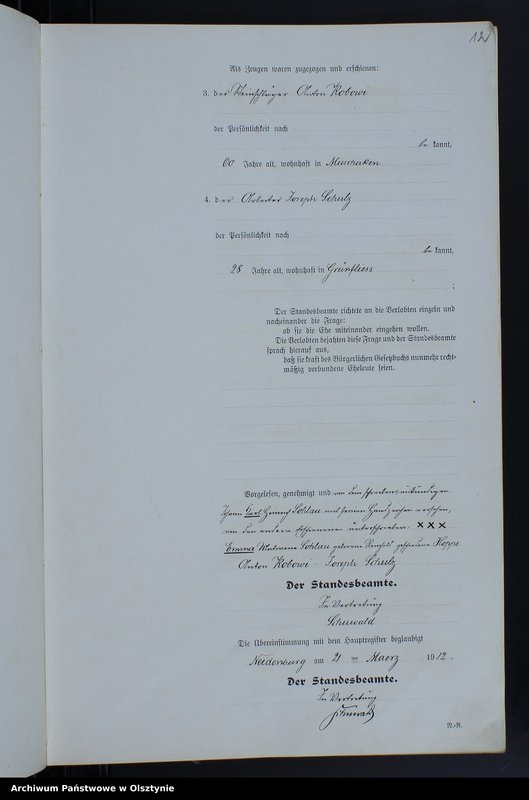 12
Als Zeugen waren zugezogen und erschienen:
3. der Steinschläger Anton Kobowi
der Persönlichkeit nach
be kannt,
60 Jahre alt, wohnhaft in Muschaken
4. der Arbeiter Joseph Schulz
der Persönlichkeit nach
be kannt,
28 Jahre alt, wohnhaft in Grünfliess
;
Der Standesbeamte richtete an die Verlobten einzeln und
nacheinander die Frage:
ob sie die Ehe miteinander eingehen wollen.
Die Verlobten bejahten diese Frage und der Standesbeamte
sprach hierauf aus,
daß sie kraft des Bürgerlichen Gesetzbuchs nunmehr recht-
mäßig verbundene Eheleute seien.
Vorgelesen, genehmigt und von dem schreibensunkundigen
Johann Karl Heinrich Sohlau mit seinem Handzeichen versehen,
von den andern Erschienenen unterschrieben. XXX
Emma Sohlau geborene geschiedene Hoppe
Anton Kobowi Joseph Schulz
Der Standesbeamte.
In Vertretung
Schuwald
Die Übereinstimmung mit dem Hauptregister beglaubigt
Neidenburg am 21 ten Maerz 1912.
Der Standesbeamte.
In Vertretung
Schuwald
N.-R.
Archiwum Państwowe w Olsztynie